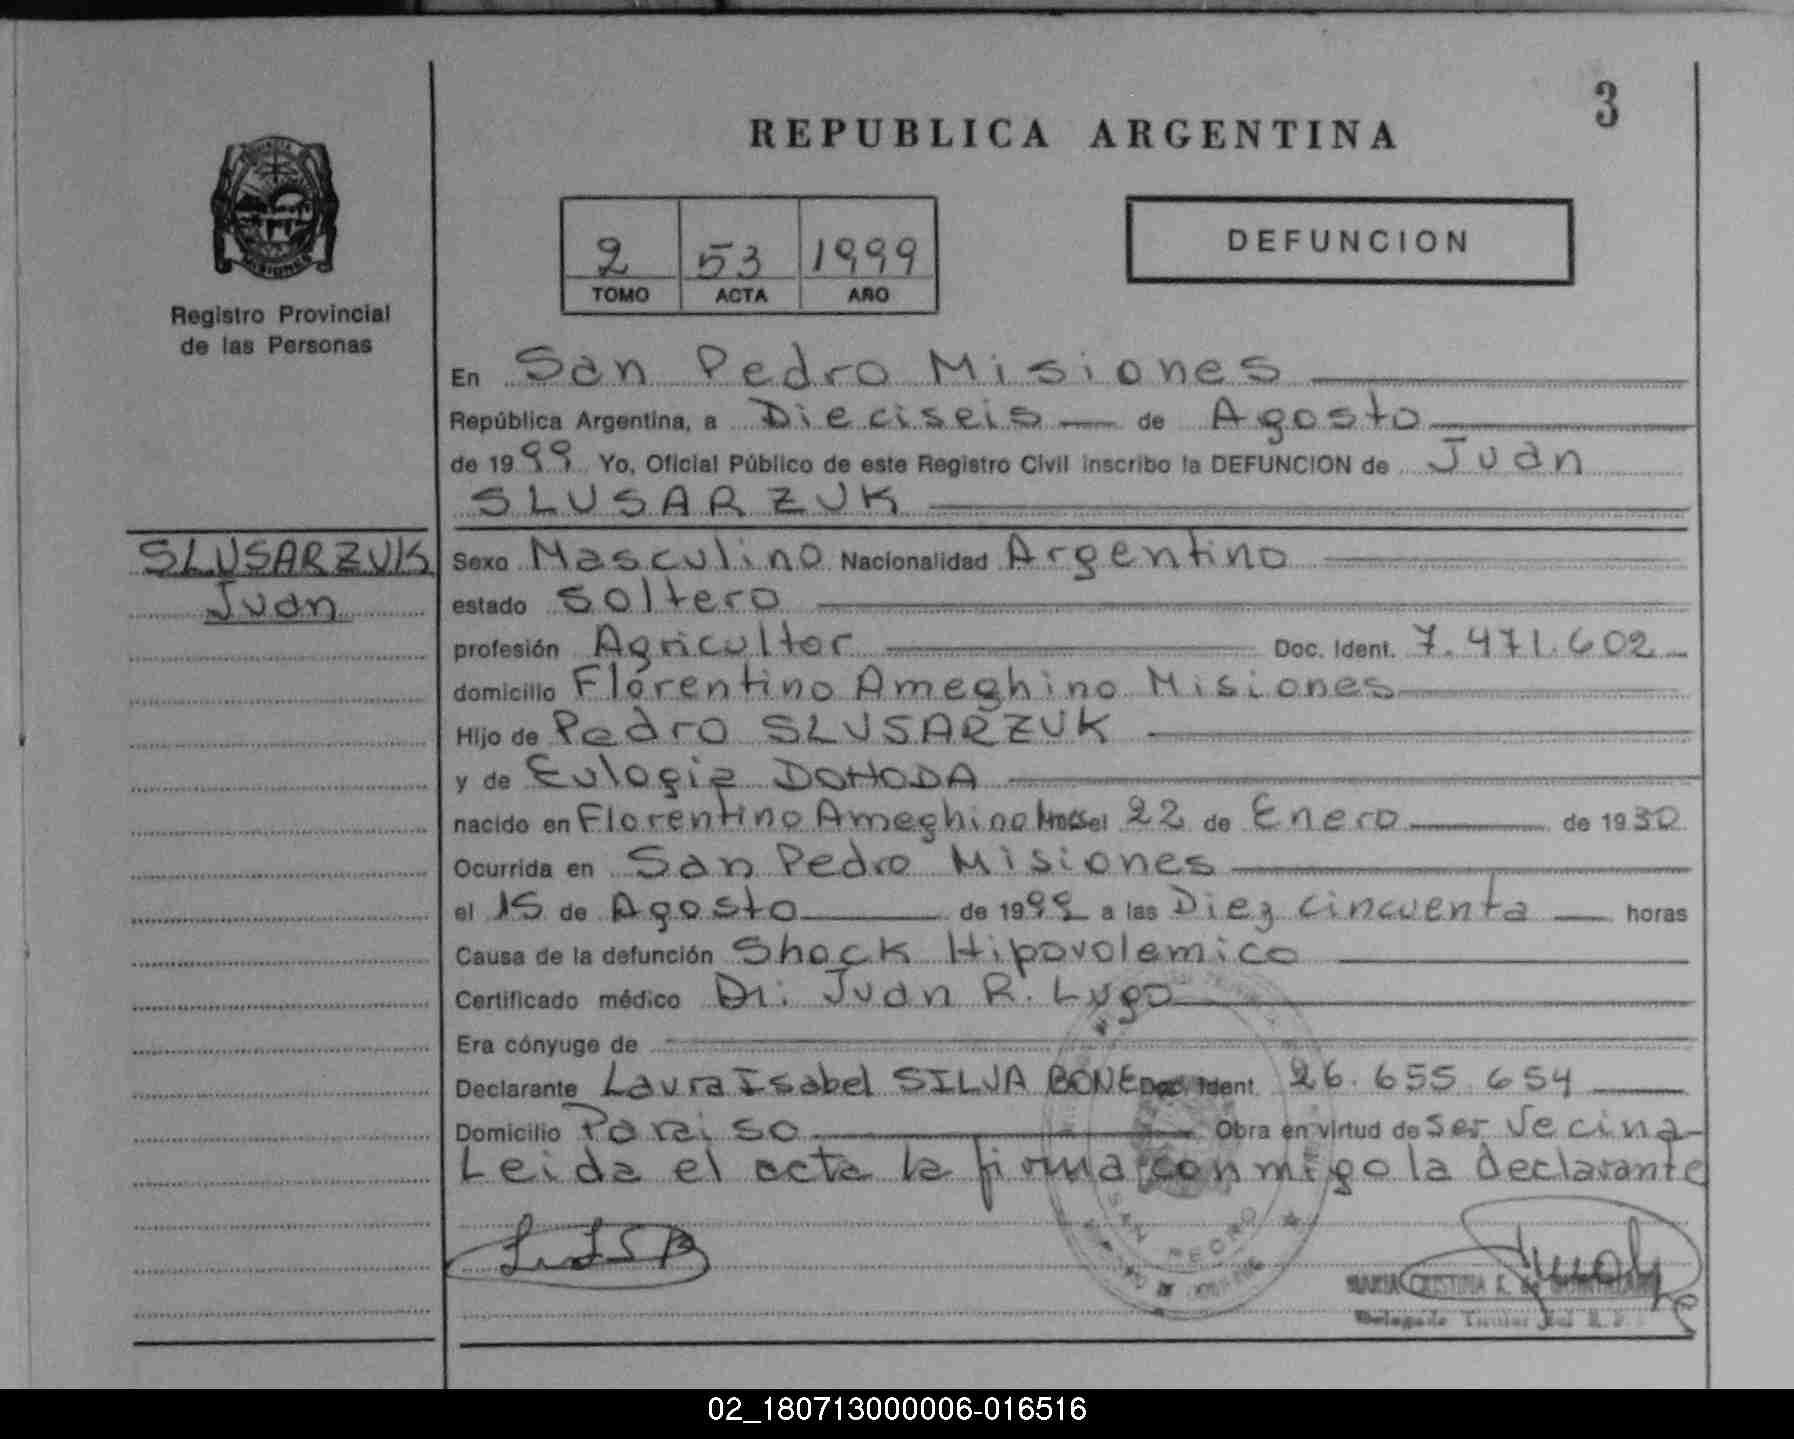 3
REPUBLICA ARGENTINA
DEFUNCION
2 53 1999
TOMO ACTA AÑO
Registro Provincial
de las Personas
MISIONES
En San Pedro Misiones
República Argentina, a Dieciseis de Agosto
de 1999 Yo, Oficial Público de este Registro Civil inscribo la DEFUNCION de Juan
SLUSARZUK
SLUSARZUK
Juan
Sexo Masculino Nacionalidad Argentino
estado Soltero
profesión Agricultor Doc. Ident. 7.471.602
domicilio Florentino Ameghino Misiones
Hijo de Pedro SLUSARZUK
y de Eulogia DOHODA
nacido en Florentino Ameghino el 22 de Enero de 1930
Ocurrida en San Pedro Misiones
el 15 de Agosto de 1999 a las Diez cincuenta horas
Causa de la defunción Shock Hipovolemico
Certificado médico Dr. Juan R. Lugo
Era cónyuge de
Declarante Laura Isabel SILVA BONE Doc. Ident. 26.655.654
Domicilio Paraiso Obra en virtud de Ser Vecina
Leida el acta la firma conmigo la declarante
SAN PEDRO
MARIA CRISTINA
Delegado Titular
02_180713000006-016516